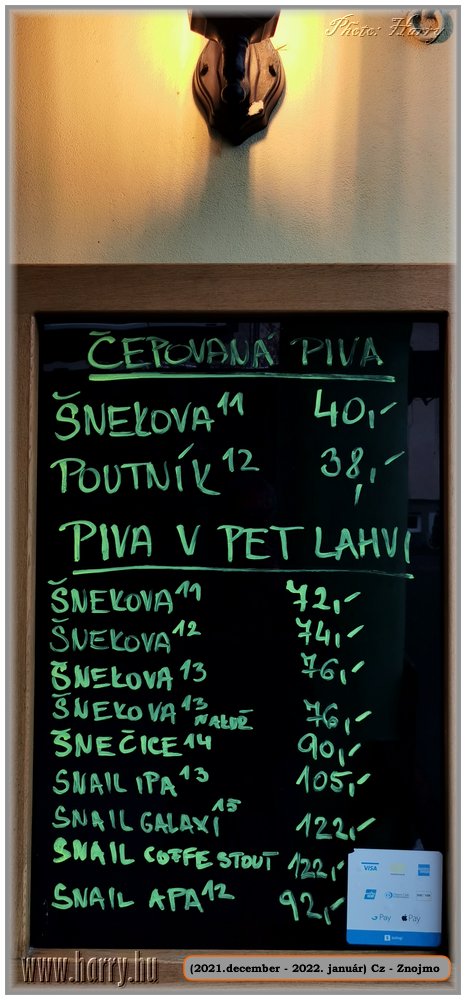 Photo: Harry
ČEPOVANÁ PIVA
ŠNEKOVA 11 40,-
POUTNÍK 12 38,-
PIVA V PET LAHVI
ŠNEKOVA 11 72,-
ŠNEKOVA 12 74,-
ŠNEKOVA 13 76,-
ŠNEKOVA 13 76,-
ŠNEČICE 14 90,-
SNAIL IPA 13 105,-
SNAIL GALAXI 15 122,-
SNAIL COFFE STOUT 122,-
SNAIL APA 12 92,-
VISA
Pay Pay
www.harry.hu
(2021.december - 2022. január) Cz - Znojmo